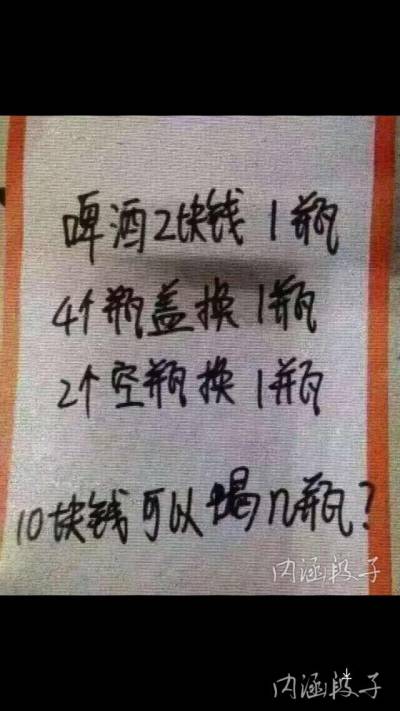 啤酒2块钱1瓶
4个瓶盖换1瓶
2个空瓶换1瓶
10块钱可以喝几瓶?
内涵段子
内涵段子